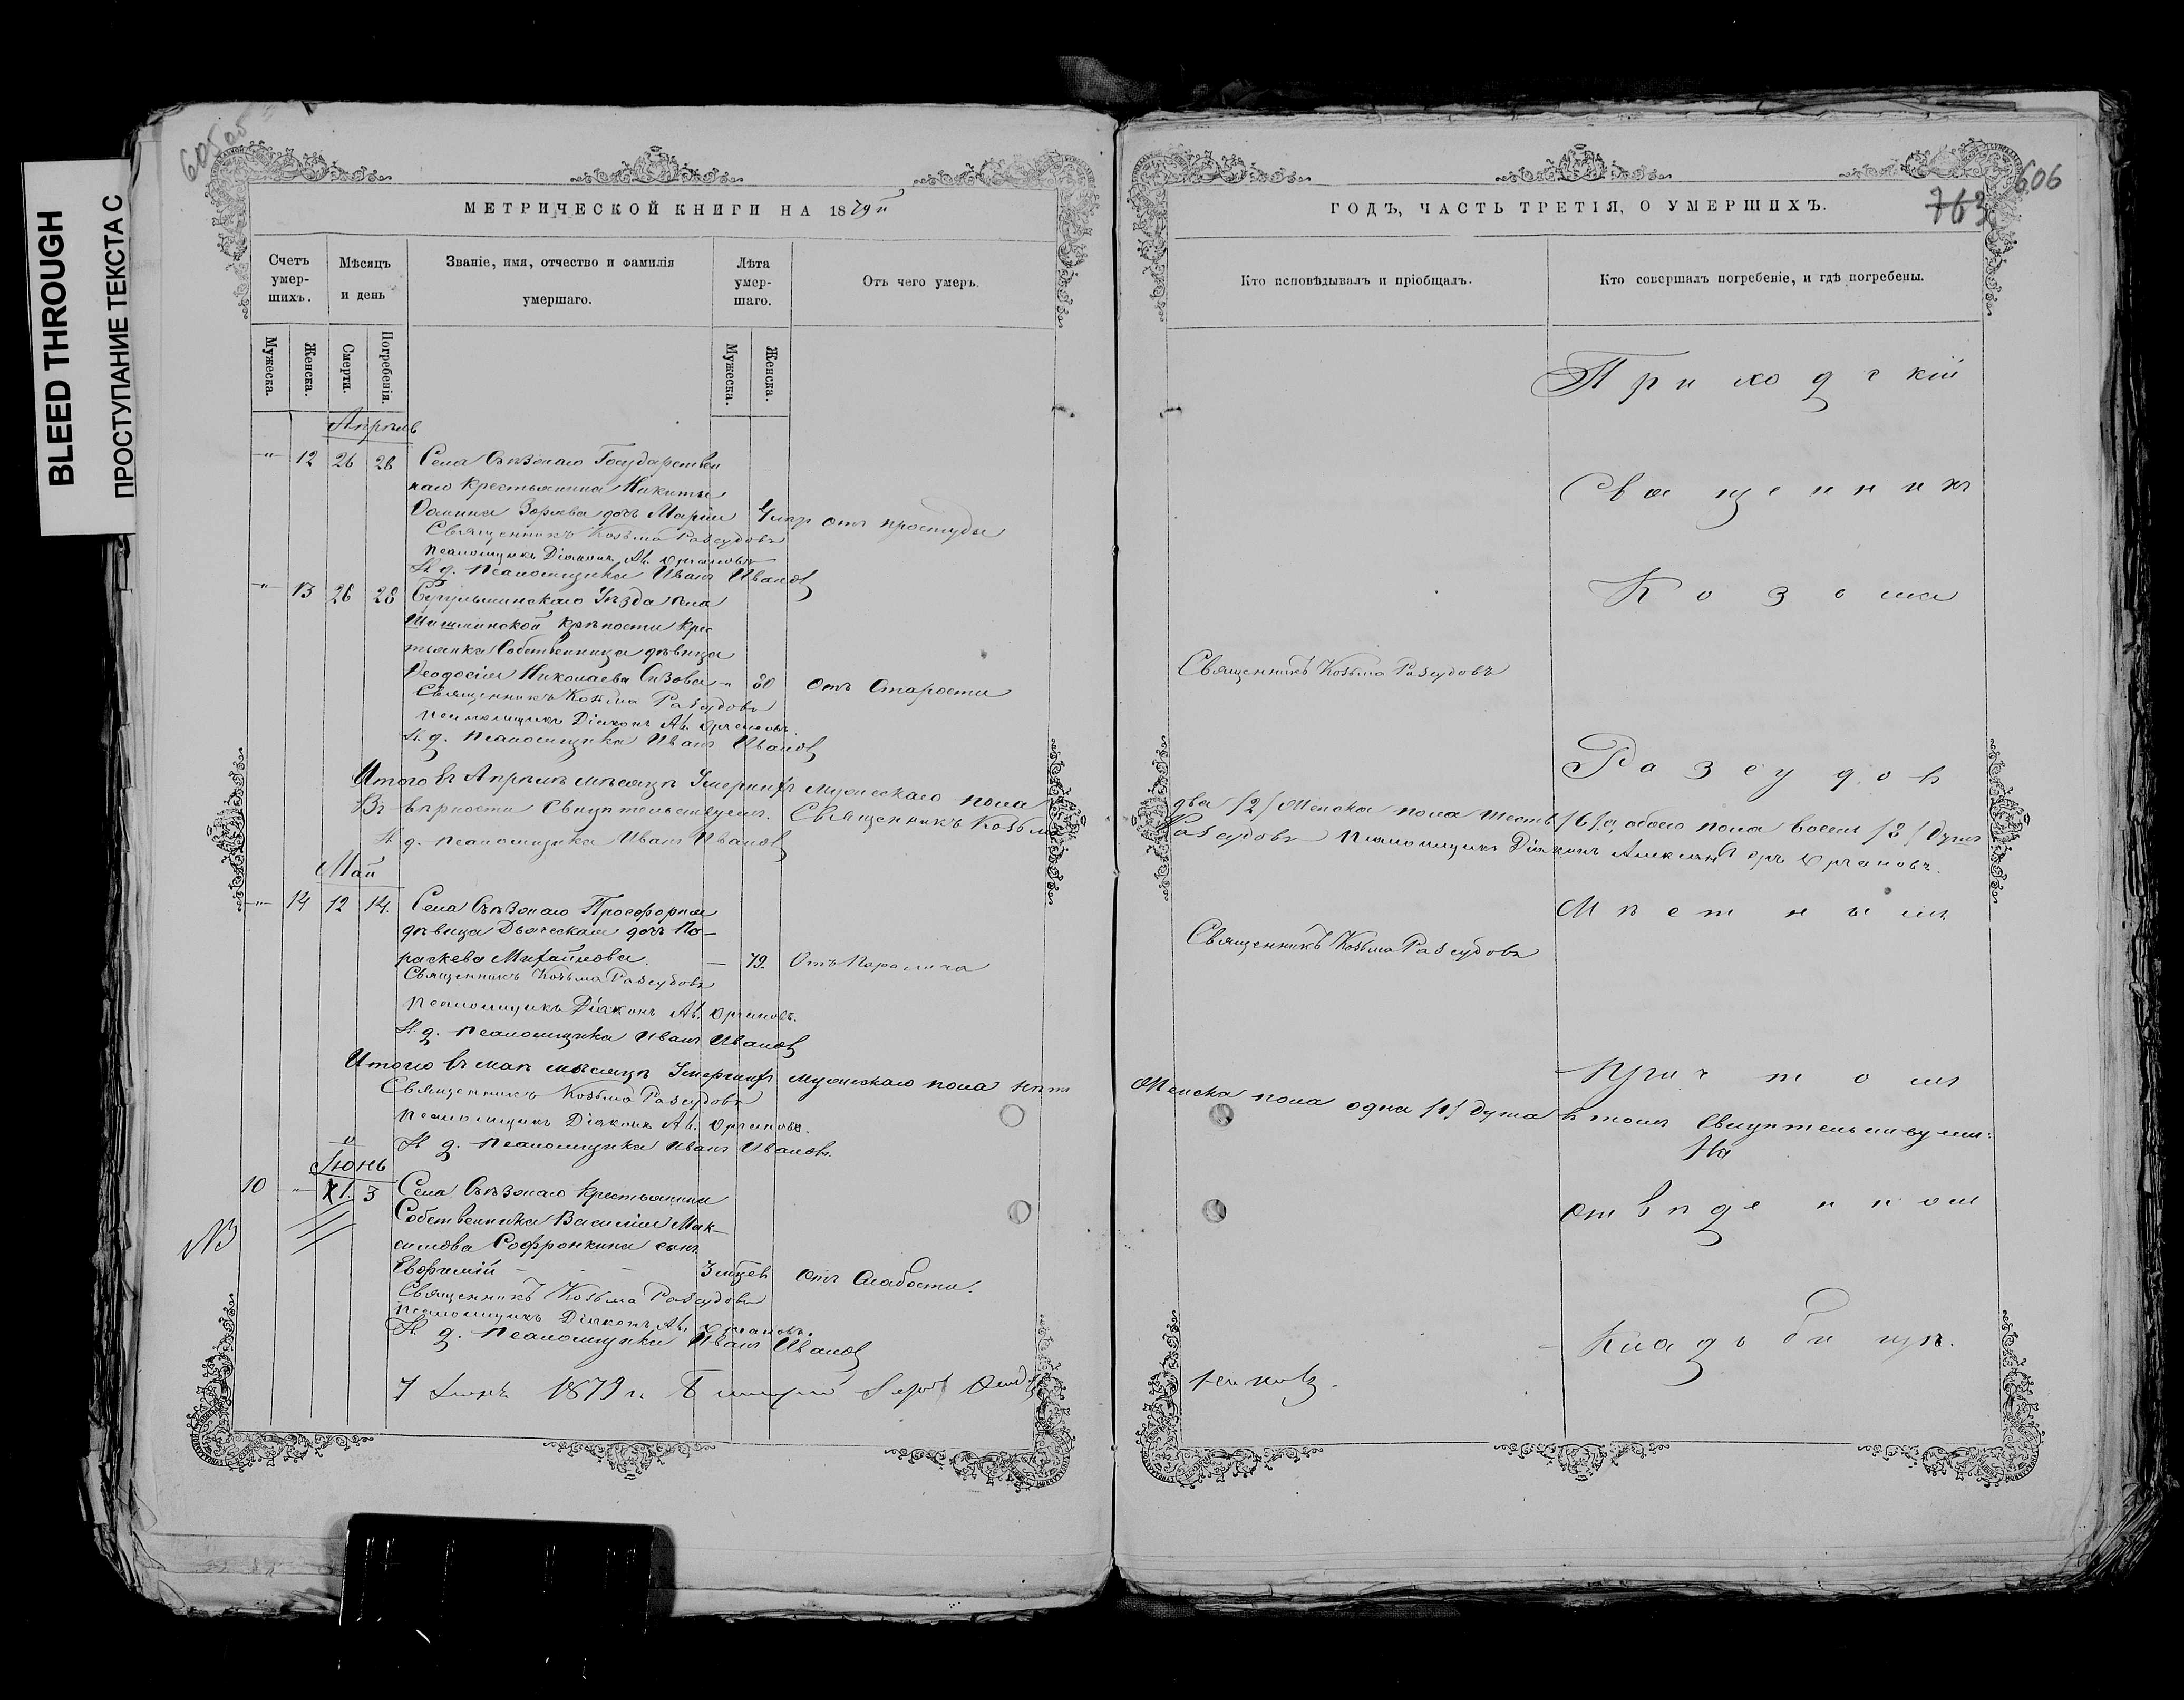 BLEED THROUGH
ПРОСТУПАНИЕ ТЕКСТА С
605 об
МЕТРИЧЕСКОЙ КНИГИ НА 1879й
Счетъ умер-шихъ.
Мѣсяцъ и день
Званіе, имя, отчество и фамилія умершаго.
Лѣта умер-шаго.
Отъ чего умеръ.
Мужеска.
Женска.
Смерти.
Погребенія.
Мужеска.
Женска.
Апрѣль
" 12 26 28 Села Съѣзжаго Государствен
наго крестьянина Никиты
Ѳомина дочь Марія 4 отъ простуды
Священникъ Козьма Разсудовъ
Псаломщикъ Діаконъ Ал.
И. д. Псаломщика Иванъ Ивановъ
" 13 26 28 Бугульминскаго Уѣзда
Шишминской крѣпости Крес
тьянка Собственница дѣвица
Ѳеодосія Николаева Сизова " 80 отъ Старости
Священникъ Козьма Разсудовъ
Псаломщикъ Діаконъ Ал.
И. д. Псаломщика Иванъ Ивановъ
Итого въ Апрѣлѣ мѣсяцѣ Умершихъ мужескаго пола
Въ вѣрности Свидѣтельствуемъ. Священникъ Козьма
И. д. Псаломщика Иванъ Ивановъ
Май
" 14 12 14. Села Съѣзжаго Просфорня
дѣвица Дьяческая дочь Па-
раскева Михайлова. — 79. Отъ Паралича
Священникъ Козьма Разсудовъ
Псаломщикъ Діаконъ Ал.
И. д. Псаломщика Иванъ Ивановъ
Итого въ маѣ мѣсяцѣ Умершихъ мужескаго пола нѣтъ
Священникъ Козьма Разсудовъ
Псаломщикъ Діаконъ Ал.
И. д. Псаломщика Иванъ Ивановъ.
Іюнь
10 " 1. 3 Села Съѣзжаго Крестьянина
Собственника Василія Мак-
симова Софронкина сынъ
Евфимій 3 мѣсяцев отъ Слабости.
Священникъ Козьма Разсудовъ
Псаломщикъ Діаконъ Ал.
И. д. Псаломщика Иванъ Ивановъ
7 1879 г.
606
763
ГОДЪ, ЧАСТЬ ТРЕТІЯ, О УМЕРШИХЪ.
Кто исповѣдывалъ и пріобщалъ.
Кто совершалъ погребеніе, и гдѣ погребены.
Приходскій
Священникъ
Козьма
Священникъ Козьма Разсудовъ
Разсудовъ
два /2/ Женска пола шесть /6/, а обоего пола восемь душъ
Разсудовъ Псаломщикъ Діаконъ Александръ
Мѣстнымъ
Священникъ Козьма Разсудовъ
Причтомъ
Женска пола одна /1/ душа въ томъ Свидѣтельствуемъ:
На
отведенномъ
Кладбищѣ.